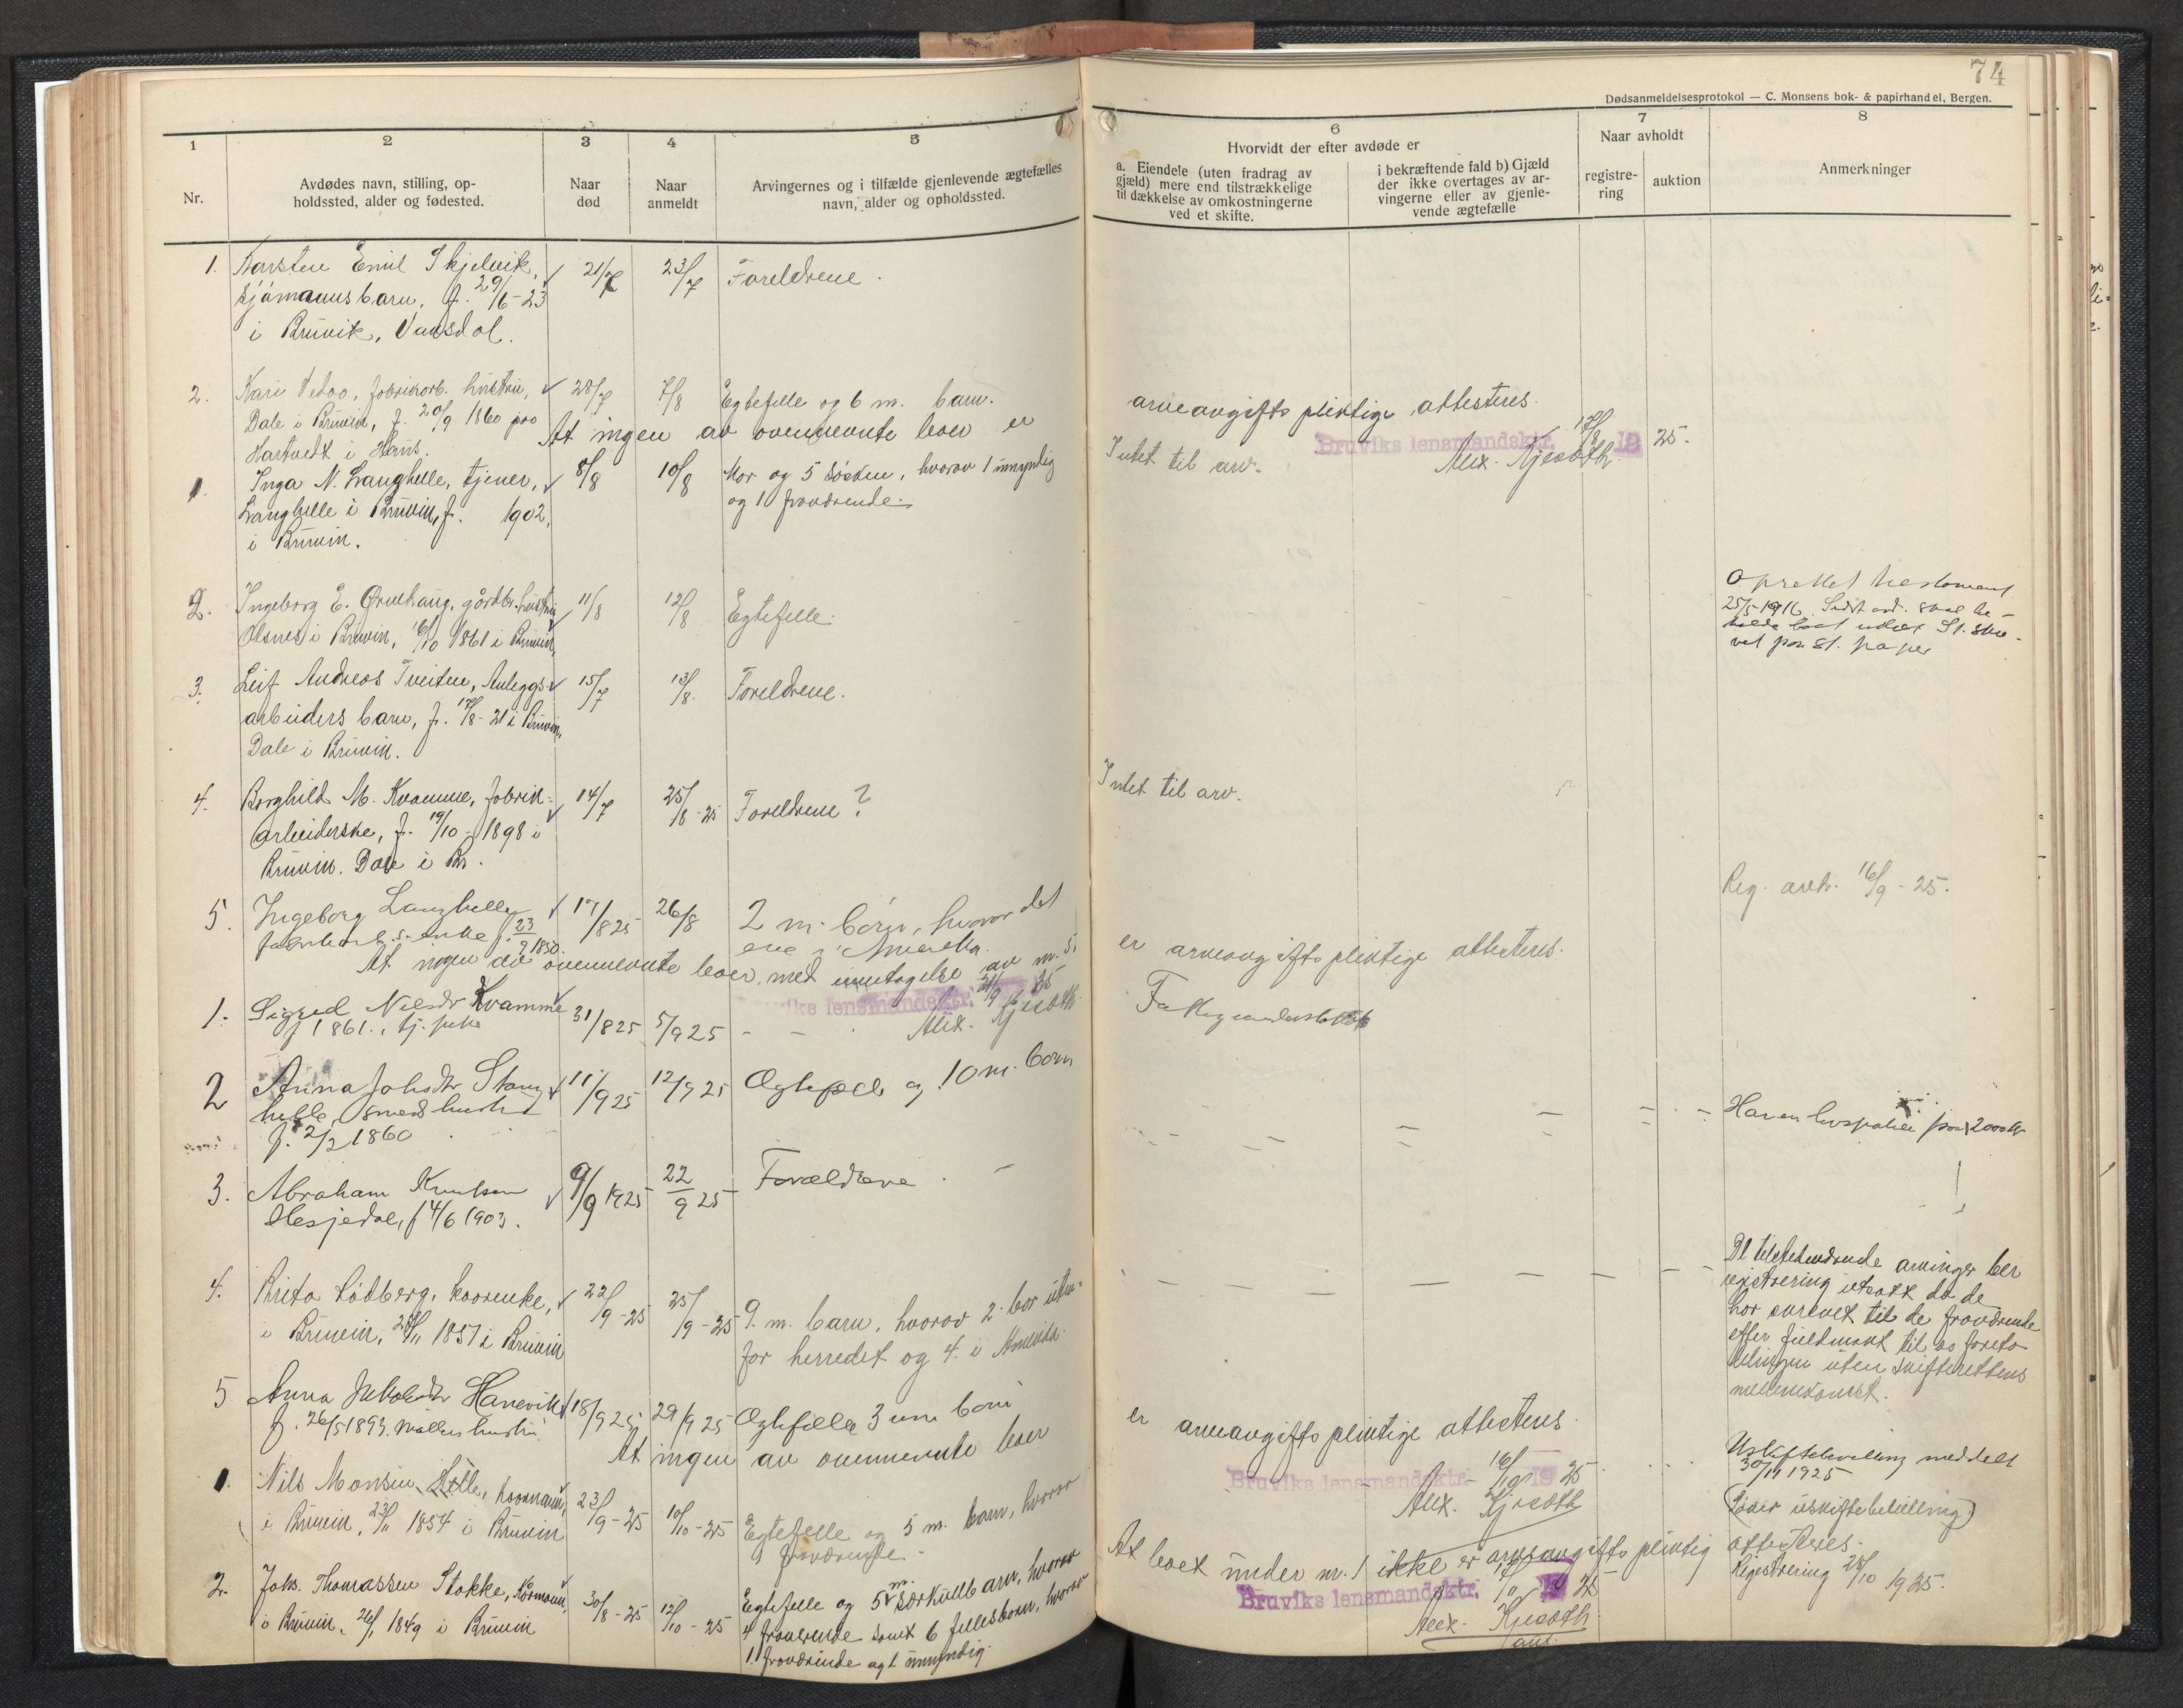 74
Dødsanmeldelsesprotokol — C. Monsens bok- & papirhandel, Bergen.
1
Nr.
2
Avdødes navn, stilling, op-
holdssted, alder og fødested.
3
Naar
død
4
Naar
anmeldt
5
Arvingernes og i tilfælde gjenlevende ægtefælles
navn, alder og opholdssted.
6
Hvorvidt der efter avdøde er
a. Eiendele (uten fradrag av
gjæld) mere end tilstrækkelige
til dækkelse av omkostningerne
ved et skifte.
i bekræftende fald b) Gjæld
der ikke overtages av ar-
vingerne eller av gjenle-
vende ægtefælle
7
Naar avholdt
registre-
ring
auktion
8
Anmerkninger
1. Karsten Emil Skjelvik, 21/7 23/7 Foreldrene.
sjømannsbarn, f. 29/6-23
i Bruvik, Vaksdal.
2. Kari Veboo, fabrikarb. hustru, 28/7 7/8 Egtefelle og 6 m. barn.
Dale i Bruvik, f. 20/9 1860 paa
Hartvedt i Hams.
At ingen av ovennevnte boer er arveavgiftspliktige attesteres.
Bruviks lensmandsktr. 17/8 1925.
Alex. Kjeroth
1. Inga N. Langhelle, tjener, 8/8 10/8 Mor og 5 søsken, hvorav 1 umyndig Intet til arv.
Langhelle i Bruvik, f. 1902, og 1 fraværende.
i Bruvik.
2. Ingeborg E. Grulhaug, gårdbr. hustru 11/8 12/8 Egtefelle.
Olsnes i Bruvik, 16/10 1861 i Bruvik,
Oprettet testament
25/5-1916.
3. Leif Andreas Tveiten, Anleggs- 15/7 13/8. Foreldrene.
arbeiders barn, f. 17/8-21 i Bruvik,
Dale i Bruvik.
4. Borghild M. Kvamme, fabrik- 14/7 25/8-25 Foreldrene? Intet til arv.
arbeiderske, f. 19/10-1898 i
Bruvik. Dale i Br.
5. Ingeborg Langhelle 17/8 25 26/8 2 m. børn, hvorav det Reg. avh. 16/9-25.
fabrikarb.s enke f. 23/9 1850. ene i Amerika.
At ingen av ovennevnte boer, med unntagelse av nr. 5, er arveavgiftspliktige attesteres.
Bruviks lensmandsktr. 21/9 25
Alex. Kjeroth
1. Sigrid Nilsdr Kvamme 31/8 25 5/9 25 - - Fattigunderstøttet
f 1861., tj. pike
2 Anna Johsdr Stang- 11/9 25 12/9 25 Ægtefæll og 10 m. børn
helle, smeds hustru
f. 2/2 1860
Har en livspolise paa 2000 kr
3. Abraham Knutsen 9/9 1925 22/9 25 Forældrene
Hesjedal, f 4/6 1903.
4. Brita Lødberg, kaarenke, 22/9-25 25/9-25 9. m. barn, hvorav 2. bor uten-
i Bruvik, 28/11 1851 i Bruvik for herredet og 4. i Amerika.
De tilstedeværende arvinger ber
registrering utsatt da de
har skrevet til de fraværende
efter fuldmakt til at foreta
delingen uten skifterettens
mellemkomst.
5 Anna Jakobsdr Hanevik 18/9 25 29/9 25 Ægtefælle 3 um børn
f. 26/5 1893. møllers hustru
At ingen av ovennevnte boer er arveavgiftspliktige attesteres
Bruviks lensmandsktr. 16/10 1925
Alex. Kjeroth
1. Nils Monsen Lille, kaarmann, 23/9-25 10/10-25 Egtefelle og 5 m. barn, hvorav
i Bruvik, 23/11 1854 i Bruvik 1 fraværende.
Uskiftebevilling meddelt
30/11 1925
(Søker uskiftebevilling)
At boet under nr. 1 ikke er arveavgiftspliktig attesteres.
Bruviks lensmandsktr. 17/10 1925
Alex. Kjeroth
2. Johs. Thomassen Stokke, Kårmann, 30/8-25 12/10-25 Egtefelle og 5 m. særkullbarn, hvorav
i Bruvik, 26/1 1849 i Bruvik 4 fraverende samt 6 fellesbarn, hvorav
1 fraværende og 1 umyndig.
Registrering 28/10 1925.